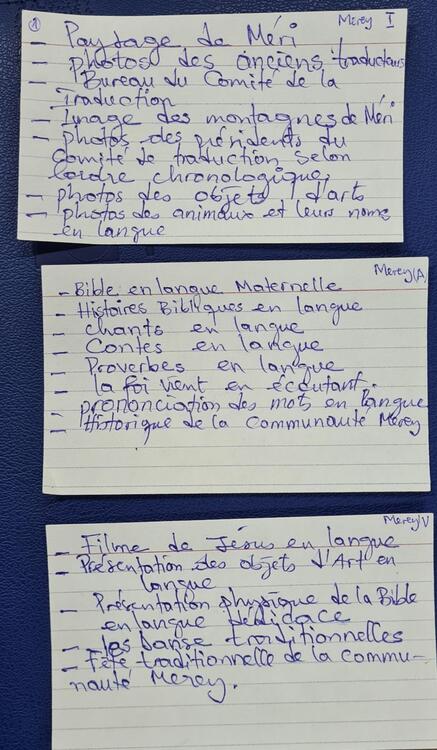 ① Merey I
- Paysage de Méri
- photos des anciens traducteurs
- Bureau du Comité de la
Traduction
- Image des montagnes de Méri
- photos des présidents du
Comité de traduction selon
l'ordre chronologique,
- photos des objets d'arts
- photos des animaux et leurs noms
en langue
Merey (A)
- Bible en langue Maternelle
- Histoires Bibliques en langue
- chants en langue
- Contes en langue
- Proverbes en langue
- la foi vient en écoutant.
- prononciation des mots en langue
- Historique de la Communauté Merey
Merey/V
- Filme de Jésus en langue
- Présentation des objets d'Art en
langue
- Présentation physique de la Bible
en langue dédicace
- les danse traditionnelles
- Fête traditionnelle de la commu-
nauté Merey.